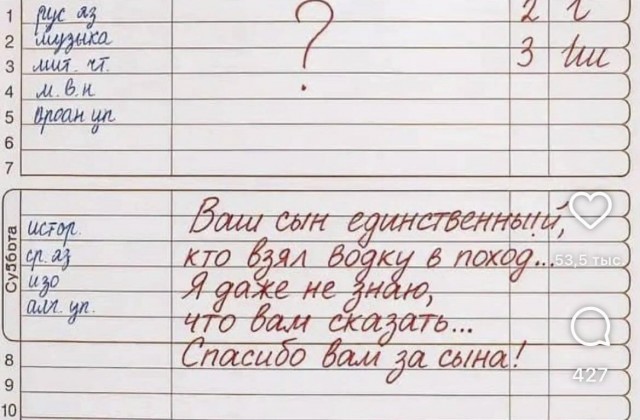 1 рус яз ? 2
2 музыка
3 лит. чт. 3
4 м. в. н
5
6
7
Суббота
истор.
ср. яз
изо
алг. уп.
Ваш сын единственный,
кто взял водку в поход...
53,5 тыс.
Я даже не знаю,
что вам сказать...
8 Спасибо вам за сына!
427
9
10